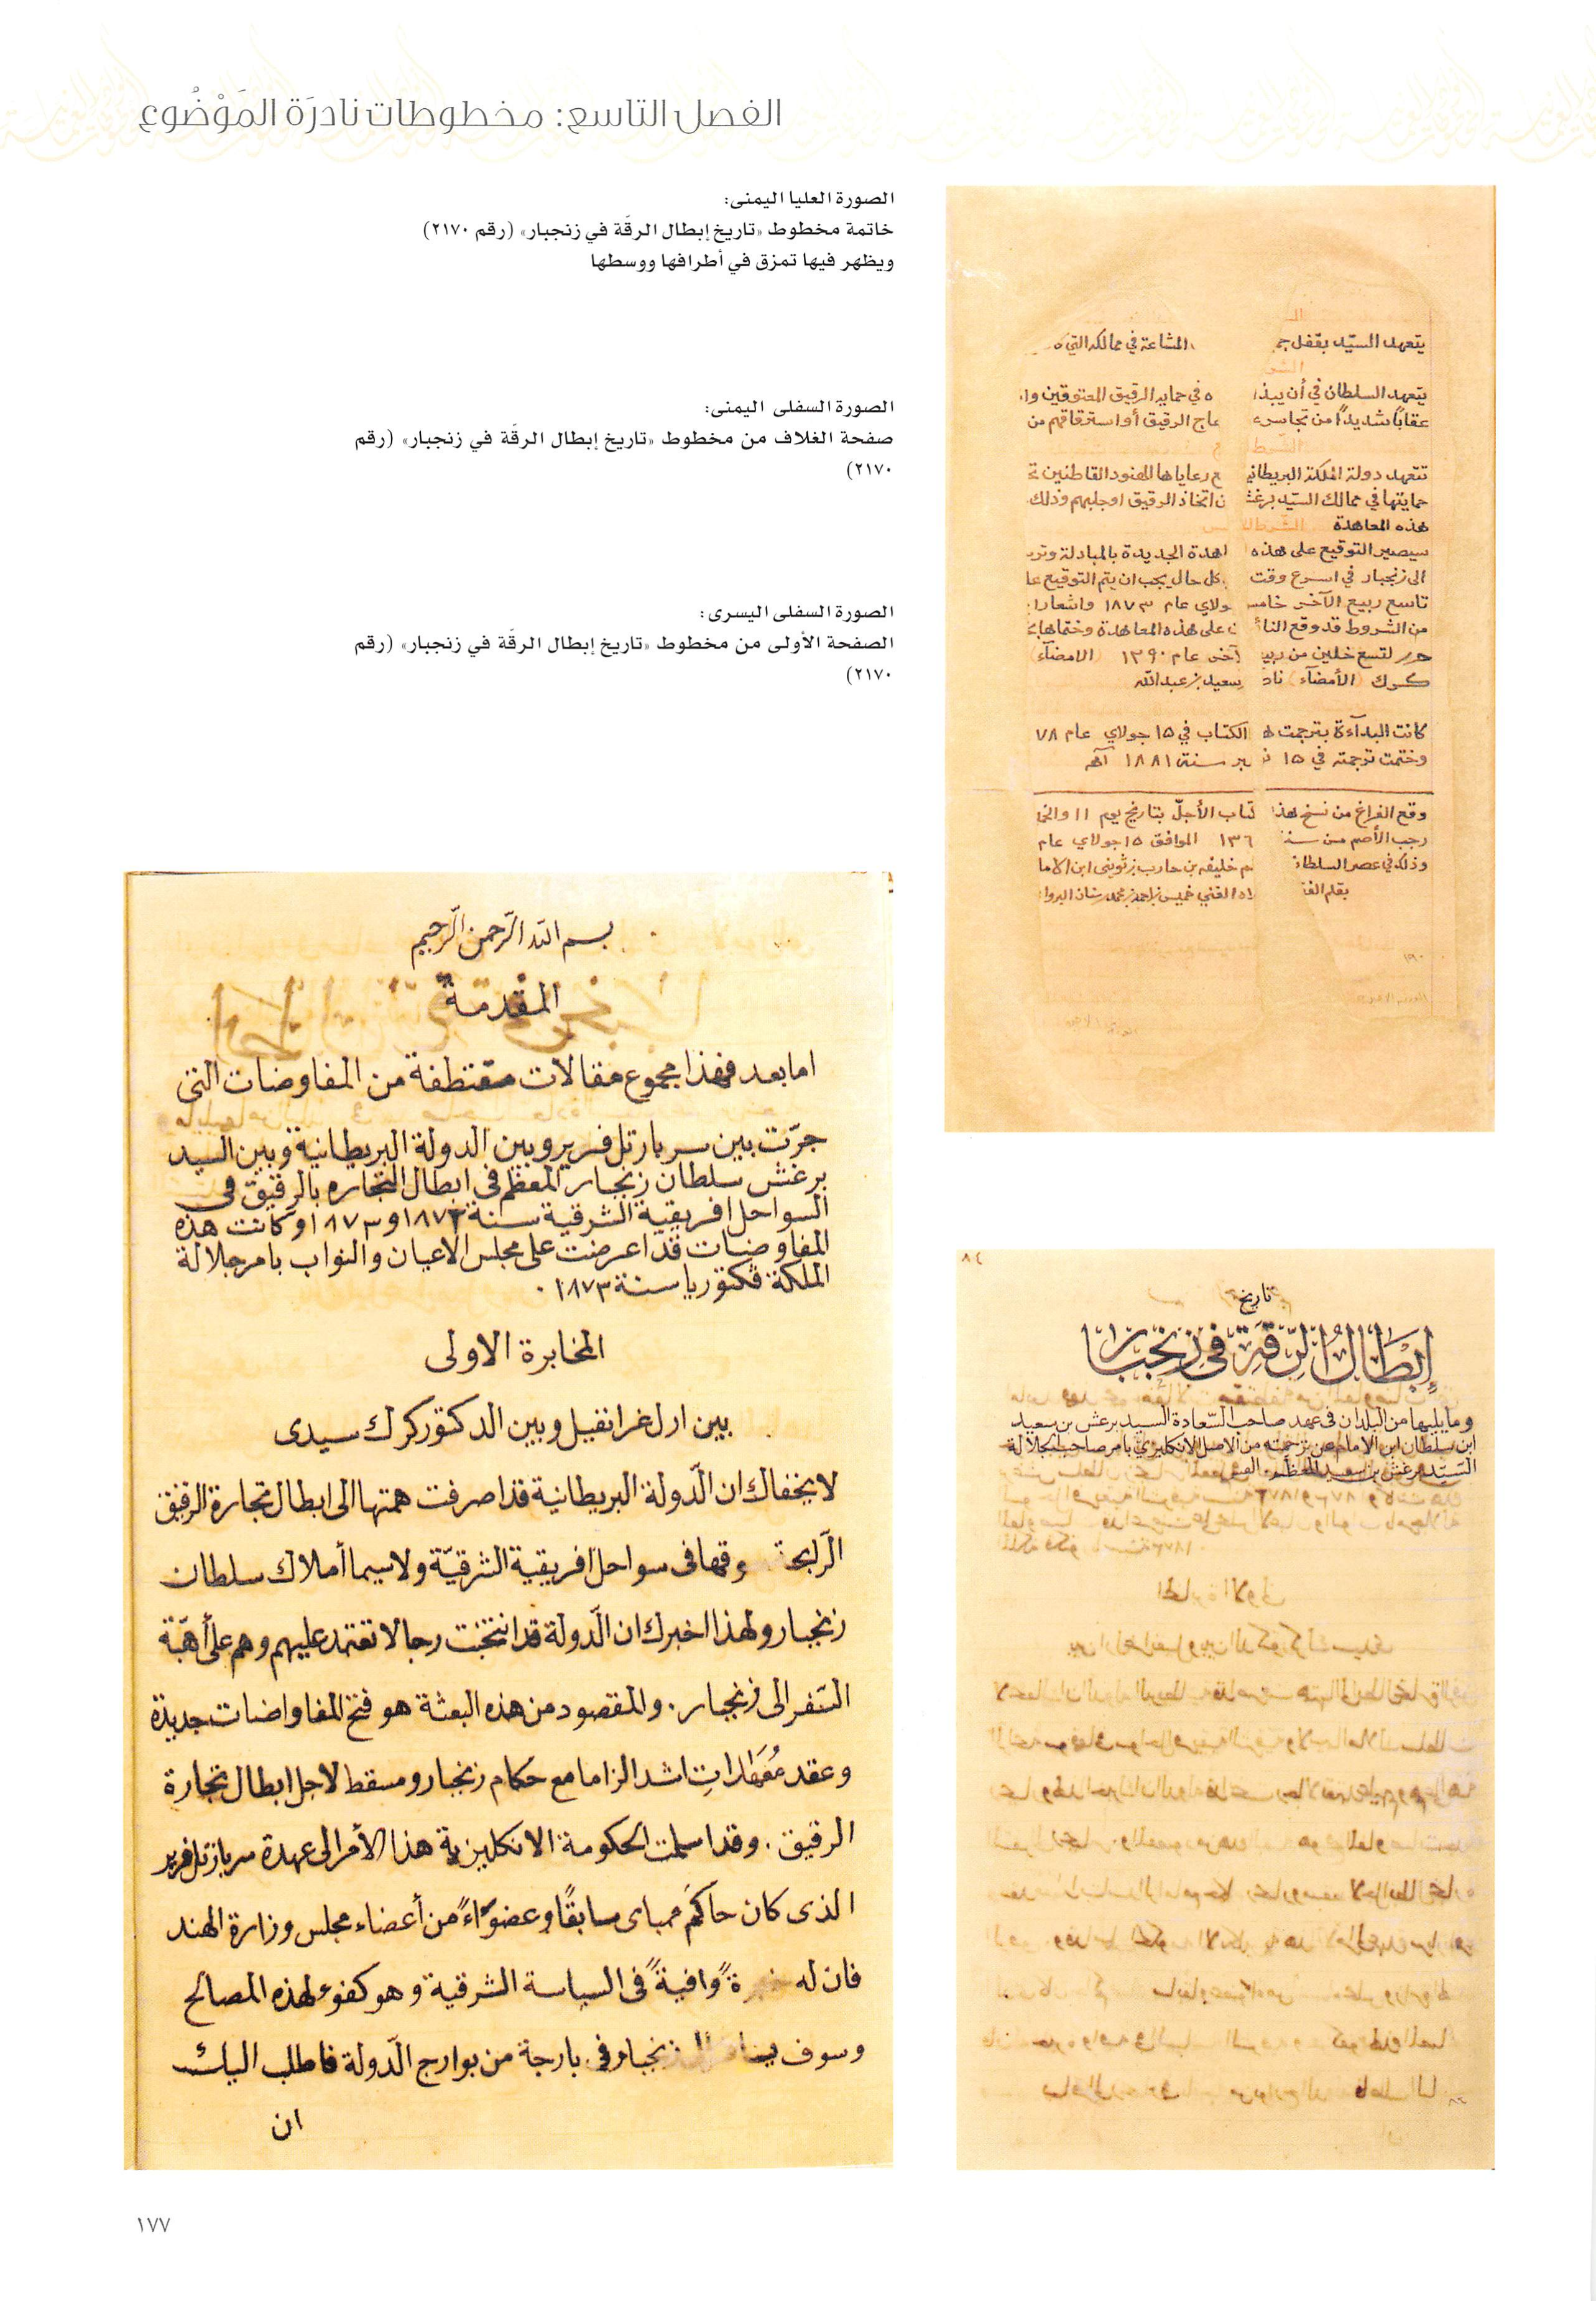 الفصل التاسع: مخطوطات نادرَة المَوْضُوع
الصورة العليا اليمنى:
خاتمة مخطوط «تاريخ إبطال الرقّة في زنجبار» (رقم ٢١٧٠)
ويظهر فيها تمزق في أطرافها ووسطها
الصورة السفلى اليمنى:
صفحة الغلاف من مخطوط «تاريخ إبطال الرقّة في زنجبار» (رقم
٢١٧٠)
الصورة السفلى اليسرى:
الصفحة الأولى من مخطوط «تاريخ إبطال الرقّة في زنجبار» (رقم
٢١٧٠)
يتعهد السيّد بقفل المشاعة في ممالكه التي
يتعهد السلطان في أن يبذ ه في حماية الرقيق المعتوقين وا
عقابًا شديدًا من تجاسر الرقيق أو استرقاقهم من
تتعهد دولة الملكة البريطاني ع رعاياها الهنود القاطنين
حمايتها في ممالك السيّد برغش ن اتخاذ الرقيق او جلبهم وذلك
هذه المعاهدة
سيصير التوقيع على هذه اهدة الجديدة بالمبادلة وتر
الى زنجبار في اسرع وقت كل حال يجب ان يتم التوقيع عا
تاسع ربيع الآخر خامس ولاي عام ١٨٧٣ واشعارا
من الشروط قد وقع النا ن على هذه المعاهدة وختماها
حرر لتسع خلين من ربيع آخر عام ١٣٩٠ (الامضآء)
كرك (الأمضآء) ناد سعيد بن عبدالله
كانت البدآءة بترجمت ه الكتاب في ١٥ جولاي عام ٧٨
وختمت ترجمته في ١٥ بر سنة ١٨٨١ آهـ
وقع الفراغ من نسخ هذا كتاب الأجلّ بتاريخ يوم ١١ والخ
رجب الأصم من سنة ١٣٦ الموافق ١٥ جولاي عام
وذلك في عصر السلطان م خليفه بن حارب بن ثويني ابن الاما
بقلم الفق الغني خميس بن احمد بن محمد البروا
بسم الله الرّحمن الرّحيم
المقدمة
اما بعد فهذا مجموع مقالات مقتطفة من المفاوضات التي
جرّت بين سر بارتل فرير وبين الدولة البريطانية وبين السيد
برغش سلطان زنجبار المعظم في ابطال التجاره بالرقيق في
السواحل افريقية الشرقية سنة ١٨٧٢ و ١٨٧٣ وكانت هذه
المفاوضات قد اعرضت على مجلس الاعيان والنواب بامر جلالة
الملكة فكتوريا سنة ١٨٧٣.
المخابرة الاولى
بين ارل غرانفيل وبين الدكتور كرك سيدى
لا يخفاك ان الدّولة البريطانية قد اصرفت همتها الى ابطال تجارة الرقيق
الرّابحة سوقها في سواحل افريقية الشرقيّة ولا سيما أملاك سلطان
زنجبار ولهذا اخبرك ان الدّولة قد انتخبت رجالا تعتمد عليهم وهم على أهبّة
السّفر الى زنجبار. والمقصود من هذه البعثة هو فتح المفاواضات جديدة
وعقد معهدات اشد الزاما مع حكام زنجبار ومسقط لاجل ابطال تجارة
الرقيق. وقد اسلمت الحكومة الانكليزية هذا الأمر الى عهدة سر بارتل فرير
الذى كان حاكم ممباى سابقًا وعضوًا من أعضاء مجلس وزارة الهند
فان له ةً وافيةً في السياسة الشرقية وهو كفوء لهذه المصالح
وسوف زنجبار في بارجة من بوارج الدّولة فاطلب اليك
ان
تاريخ
إبْطَالُ الرِّقَةِ في زنجبار
وما يليها من البلدان في عهد صاحب السّعادة السيد برغش بن سعيد
ابن سلطان ابن الامام عن ترجمته من الاصل الانكليزي بامر صاحب الجلالة
السّيّد برغش بن سعيد المعظم
١٧٧